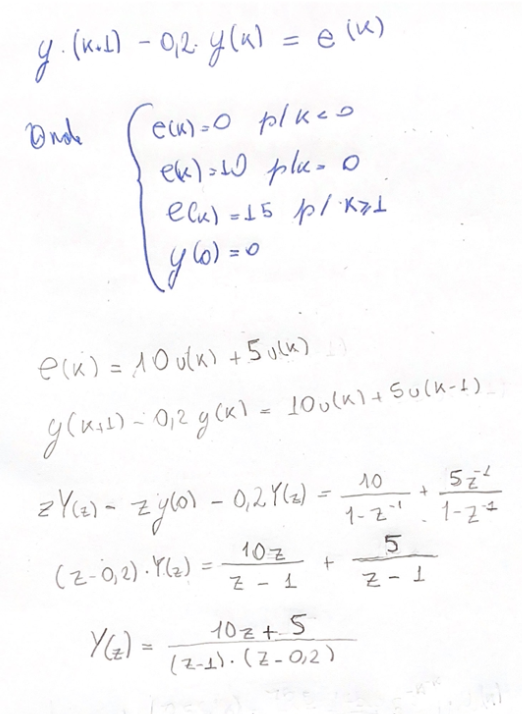 y(k+1) - 0,2 y(k) = e(k)
Onde
e(k)=0 p/k<0
e(k)=10 p/k=0
e(k)=15 p/k≥1
y(0)=0
e(k) = 10u(k) + 5u(k)
y(k+1) - 0,2 y(k) = 10u(k) + 5u(k-1)
zY(z) - zy(0) - 0,2Y(z) = 10/(1-z⁻¹) + 5z⁻¹/(1-z⁻¹)
(z-0,2).Y(z) = 10z/(z-1) + 5/(z-1)
Y(z) = (10z+5)/((z-1).(z-0,2))